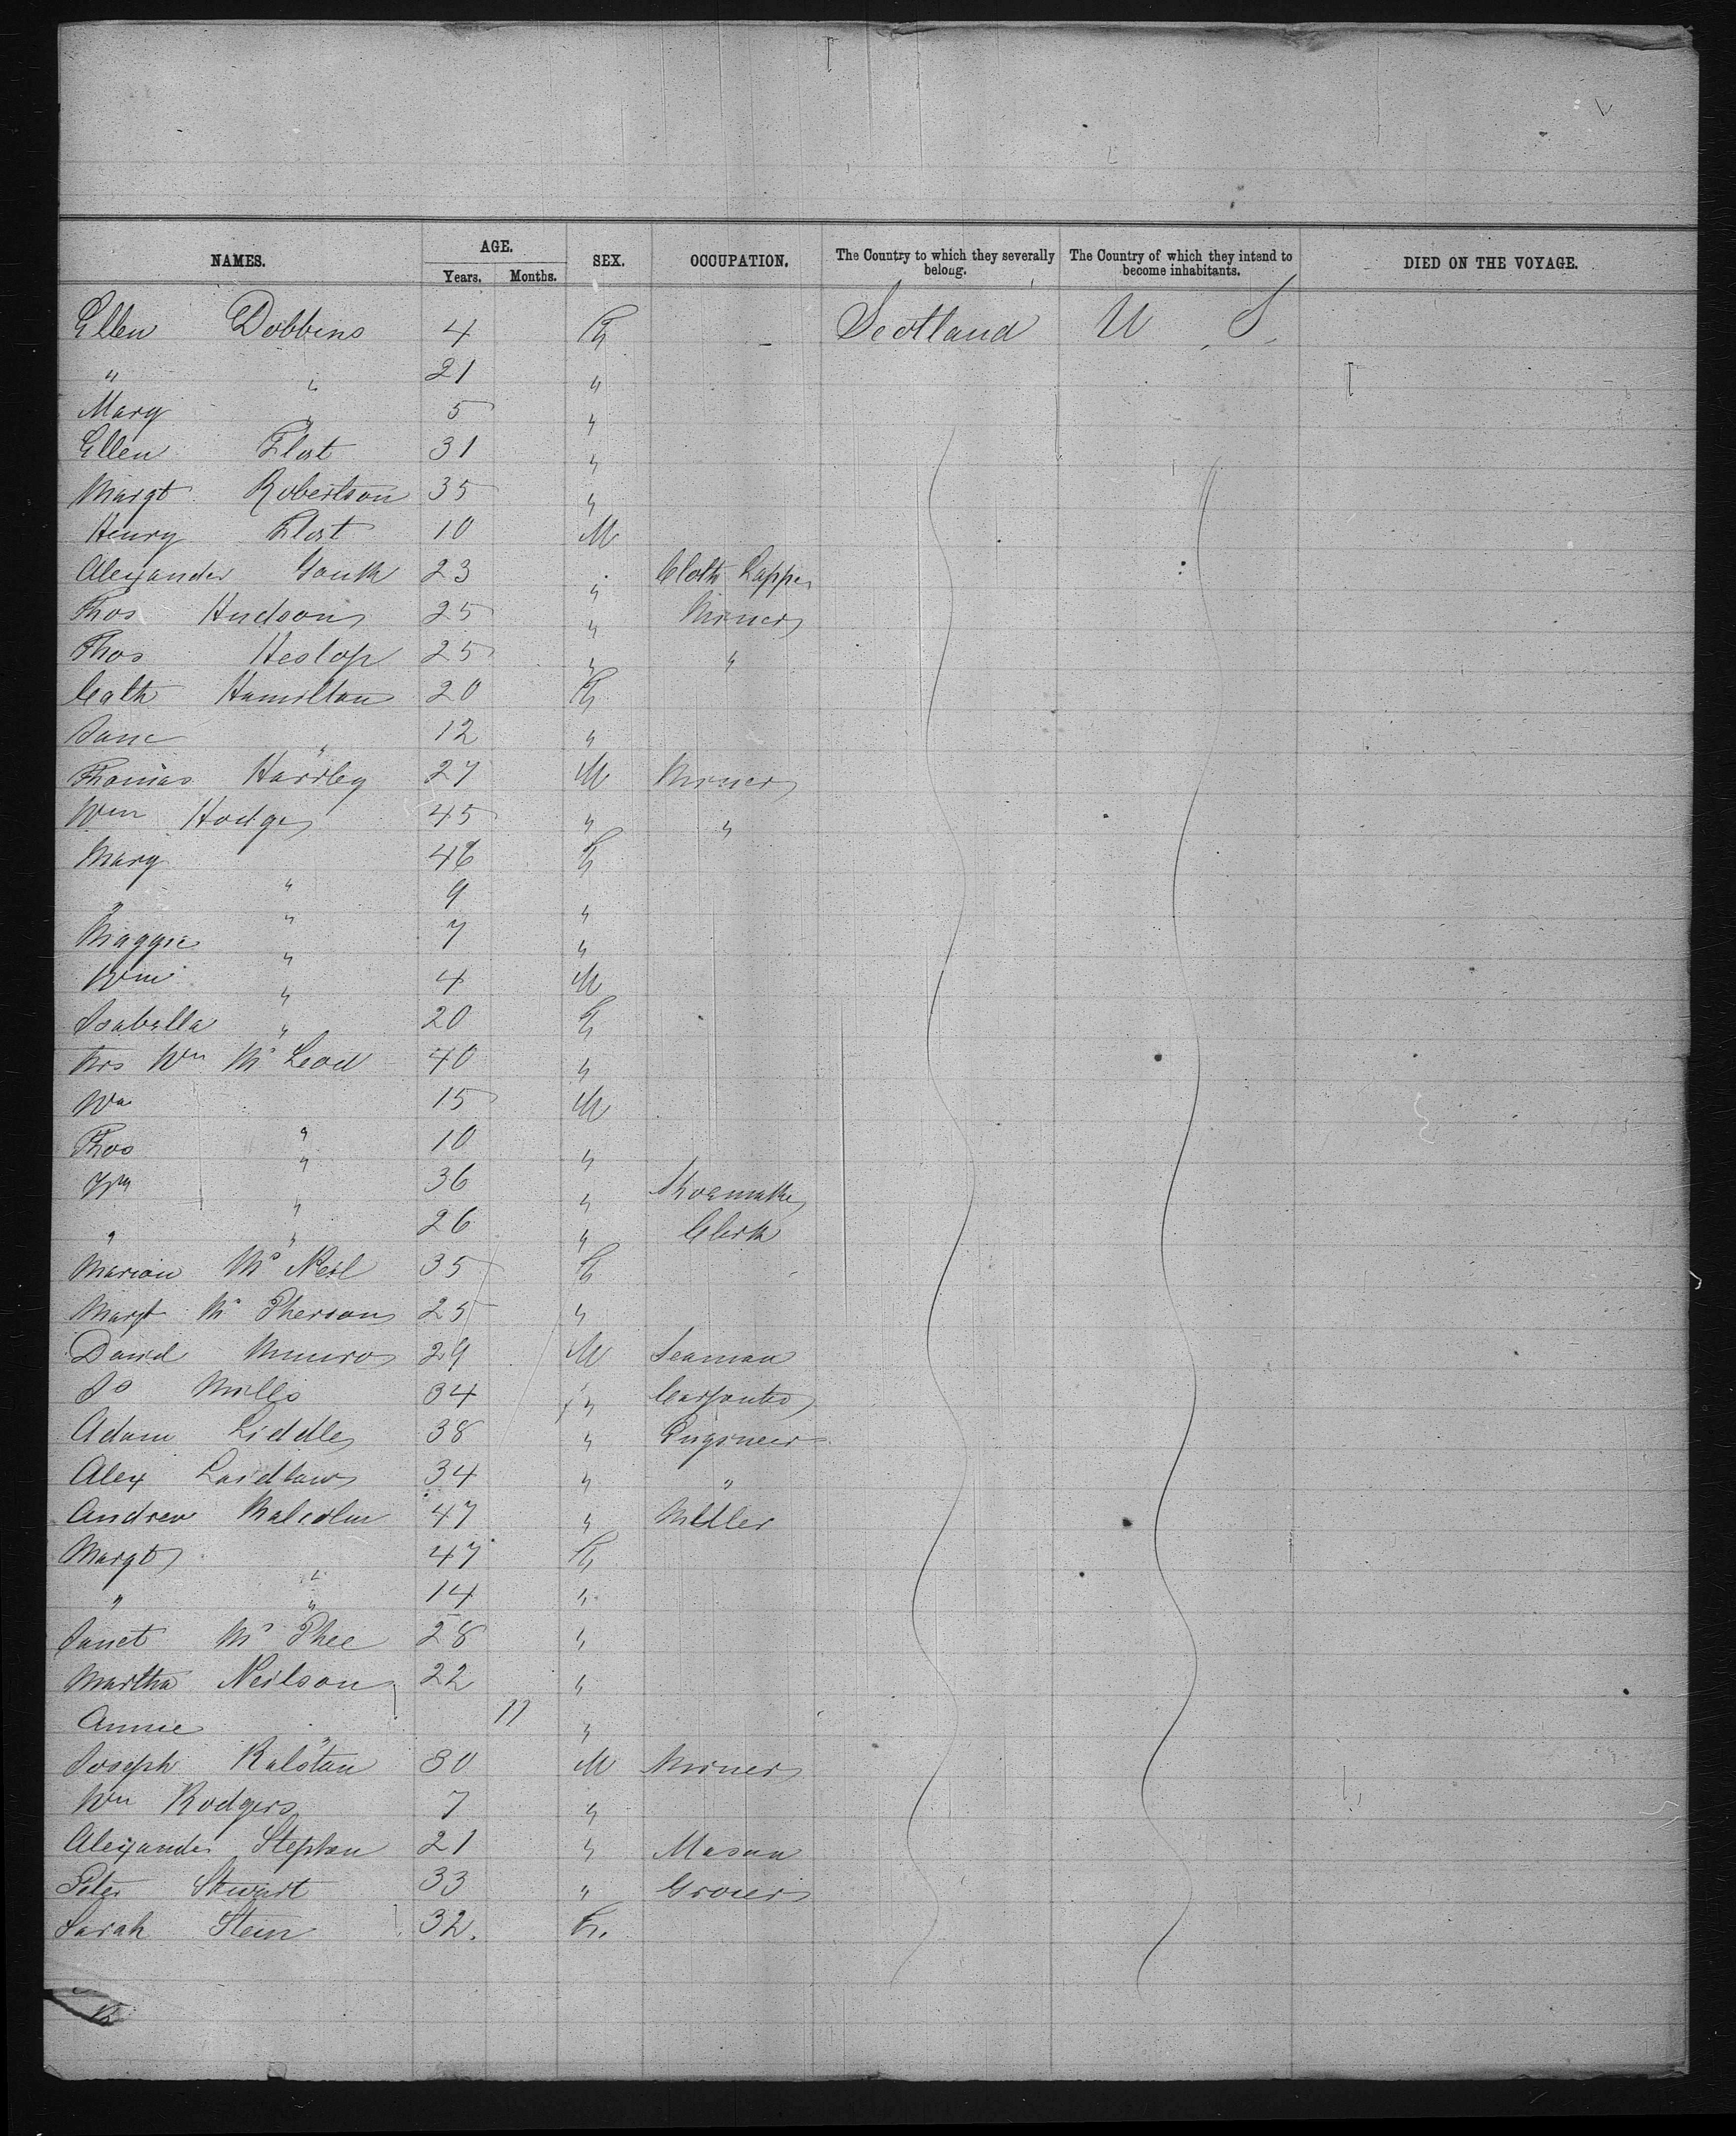 NAMES. AGE. SEX. OCCUPATION. The Country to which they severally belong. The Country of which they intend to become inhabitants. DIED ON THE VOYAGE.
Years. Months.
Ellen Dobbins 4 F Scotland U S
" " 21 "
Mary " 5 "
Ellen Flat 31 "
Margt Robertson 35 "
Henry Flat 10 M
Alexander Gouk 23 " Cloth Lapper
Thos Hudson 25 " Miner
Thos Heslop 25 " "
Cath Hamilton 20 F
Jane " 12 "
Thomas Hartley 27 M Miner
Wm Hodge 45 " "
Mary " 46 F
" " 9 "
Maggie " 7 "
Wm " 4 M
Isabella " 20 F
Mrs Wm McLeod 40 "
Wm " 15 M
Thos " 10 "
" 36 " Shoemaker
" " 26 " Clerk
Marion McNeil 35 F
Margt McPherson 25 "
David Munro 29 M Seaman
Jo Mills 34 " Carpenter
Adam Liddle 38 " Engineer
Alex Laidlaw 34 " "
Andrew Malcolm 47 " Miller
Margt " 47 F
" " 14 "
Janet McPhee 28 "
Martha Neilson 22 "
Annie " 11 "
Joseph Ralston 30 M Miner
Wm Rodgers 7 "
Alexander Stephen 21 " Mason
Peter Stewart 33 " Grocer
Sarah Stein 32. F.